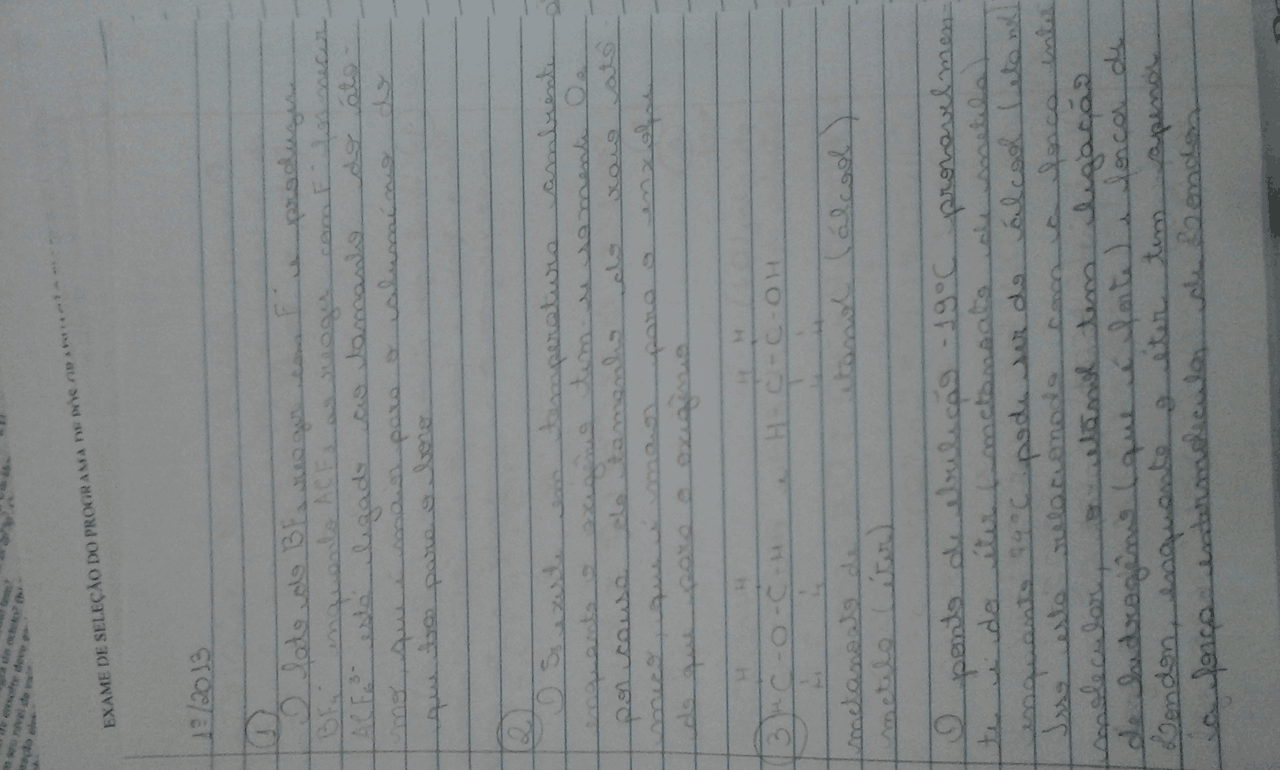 EXAME DE SELEÇÃO DO PROGRAMA DE PÓS
1º/2013
1)
O fato do BF3 reagir com F⁻ e produzir
BF4⁻ enquanto AlF3 ao reagir com F⁻ fornecer
AlF6³⁻ está ligado ao tamanho do áto-
mo que é maior para o alumínio do
que para o boro
2)
O S8 existe em temperatura ambiente
enquanto o oxigênio tem-se somente O2
por causa do tamanho do raio atô-
mico, que é maior para o enxofre
do que para o oxigênio
H H H H
3) H-C-O-C-H e H-C-C-OH
H H H H
metanoato de etanol (álcool)
metila (éter)
O ponto de ebulição -19°C provavelmen-
te é do éter (metanoato de metila)
enquanto 79°C pode ser do álcool (etanol)
Isso está relacionado com a força inter
molecular, o etanol tem ligação
de hidrogênio (que é forte) e força de
London, enquanto o éter tem apenas
a força intermolecular de London